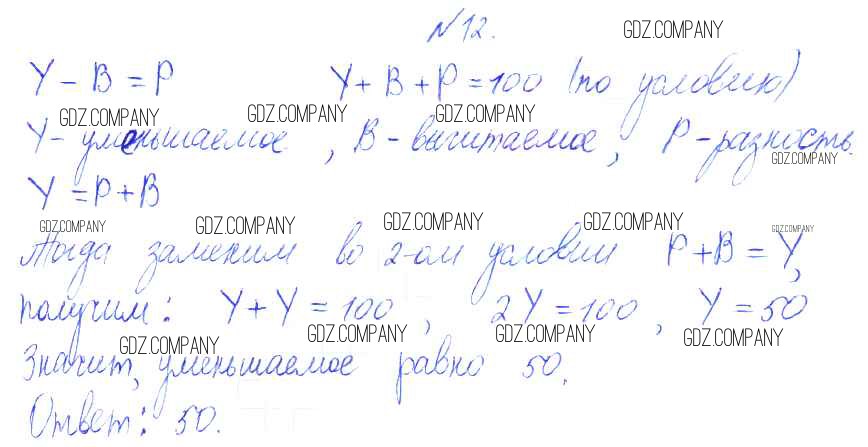 №12. GDZ.COMPANY
У - В = Р У + В + Р = 100 (по условию)
GDZ.COMPANY GDZ.COMPANY GDZ.COMPANY
У - уменьшаемое, В - вычитаемое, Р - разность.
GDZ.COMPANY
У = Р + В
GDZ.COMPANY GDZ.COMPANY GDZ.COMPANY GDZ.COMPANY GDZ.COMPANY
Тогда заменим во 2-ом условии Р + В = У,
получим: У + У = 100, 2У = 100, У = 50
GDZ.COMPANY GDZ.COMPANY GDZ.COMPANY GDZ.COMPANY
Значит, уменьшаемое равно 50.
Ответ: 50.